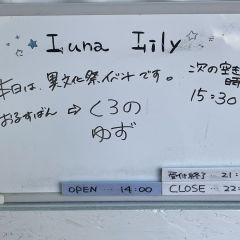 Luna Lily
本日は、異文化祭イベントです。
おるすばん ⇨ くるの
ゆず
次の空き
時
15:30
受付終了…21:
OPEN … 14:00
CLOSE … 22: